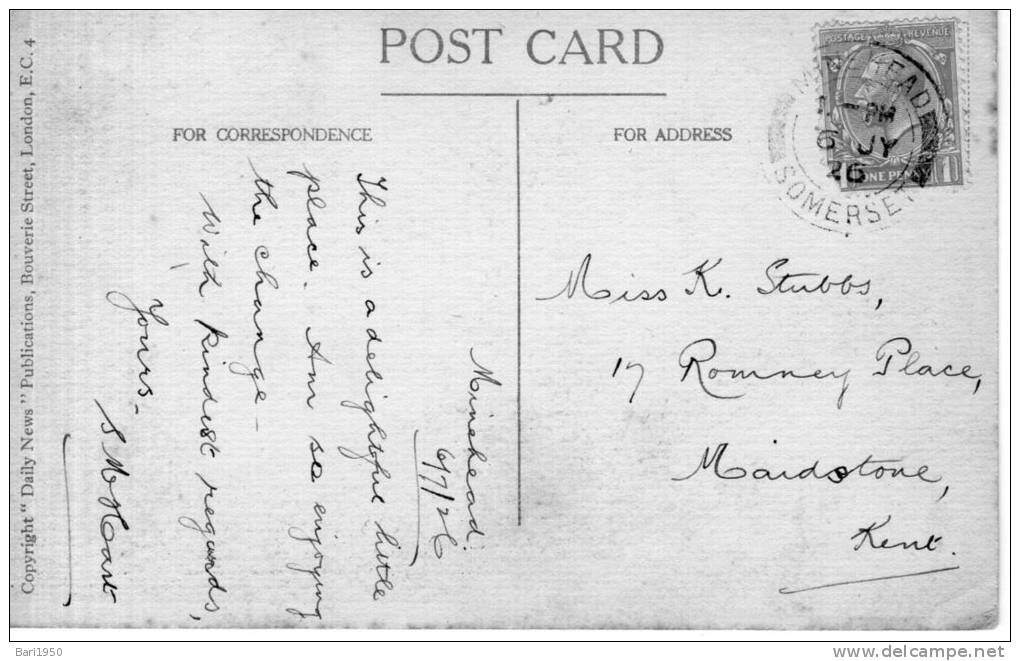 POST CARD
FOR CORRESPONDENCE
FOR ADDRESS
Copyright “ Daily News ” Publications, Bouverie Street, London, E.C. 4
POSTAGE REVENUE
ONE PENNY
MINEHEAD
PM
6 JY
26
SOMERSET
Minehead.
6/7/26
This is a delightful little
place. Am so enjoying
the change –
With kindest regards,
Yours –
S M Hart
Miss K. Stubbs,
17 Romney Place,
Maidstone,
Kent.
Bari1950
www.delcampe.net